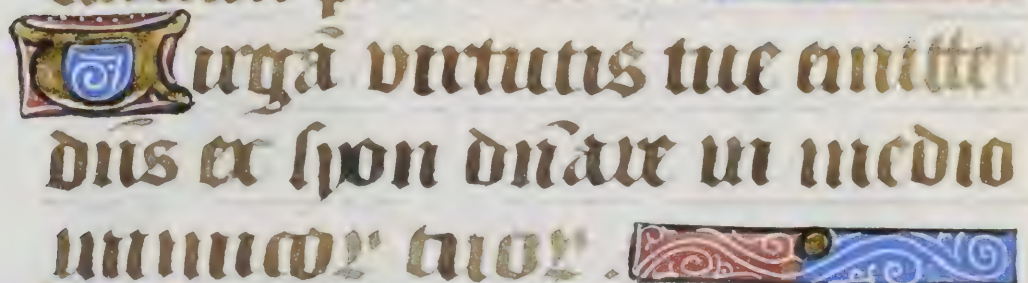 Virgā virtutis tue emittet
dn̄s ex syon dn̄are in medio
inimicoꝝ tuoꝝ .